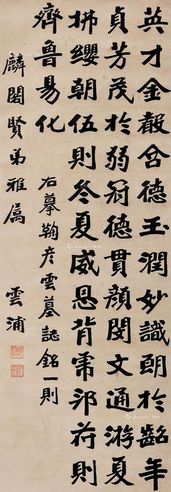 英才金聲含德玉潤妙識朗於齠年
貞芳茂於弱冠德貫顏閔文通游夏
拂纓朝伍則冬夏威恩背帝邛符則
齊魯易化
右摹鞠彥雲墓誌銘一則
麟閣賢弟雅屬
雲浦